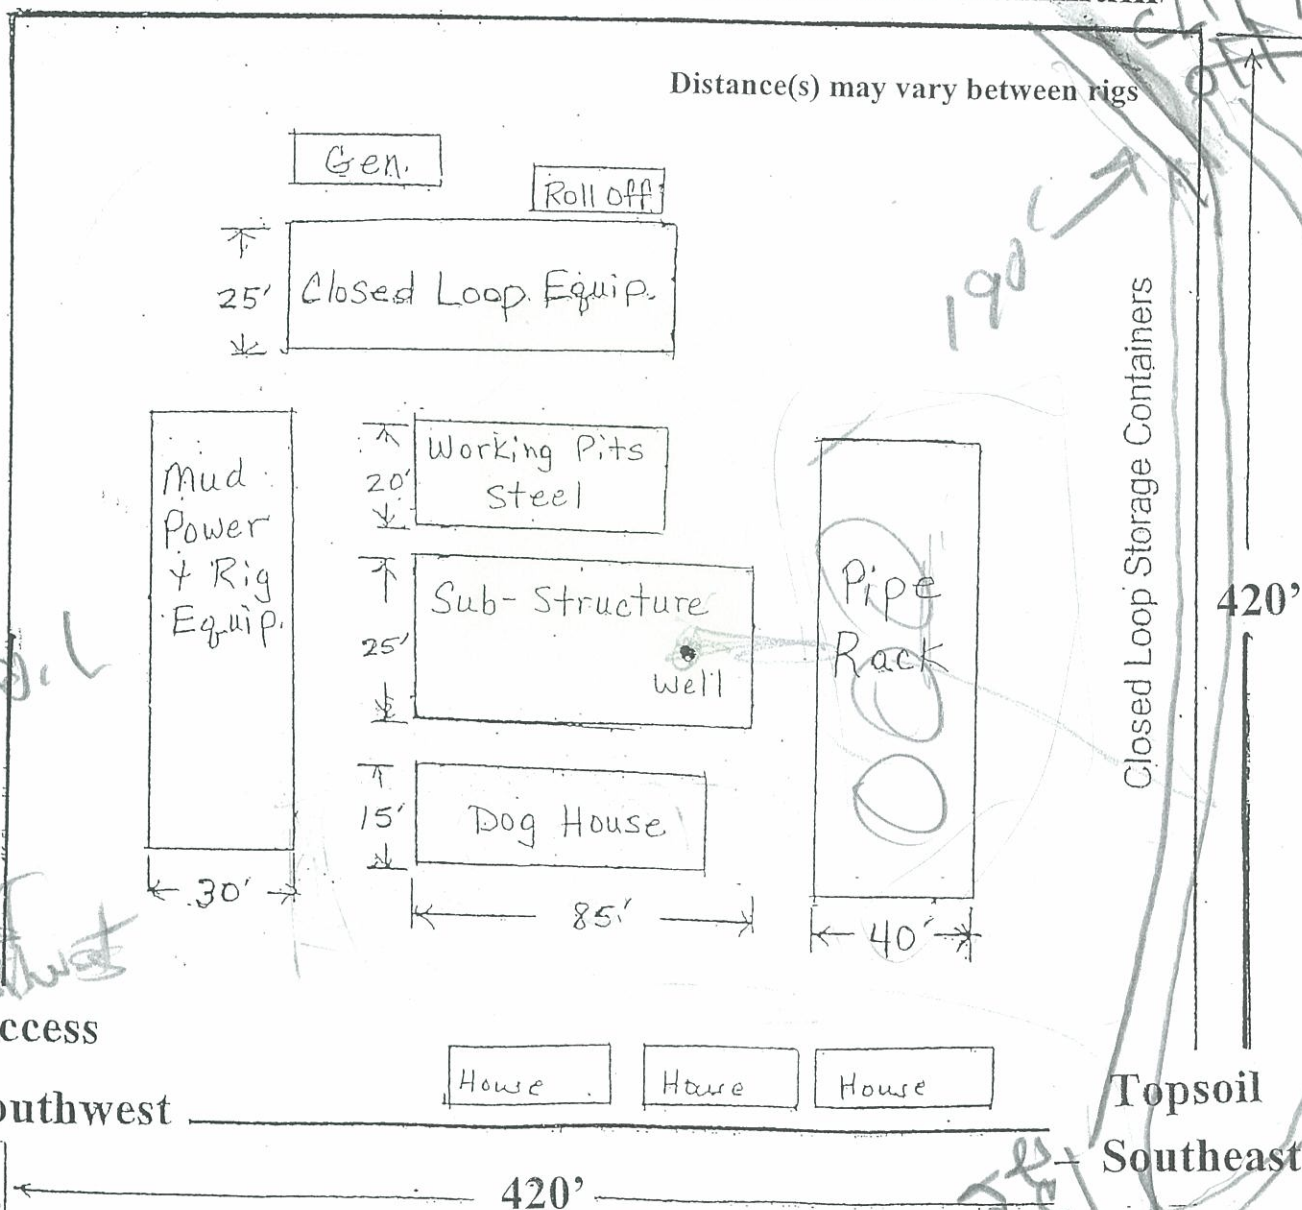 Distance(s) may vary between rigs
Gen.
Roll off
25'
Closed Loop Equip.
190'
Closed Loop Storage Containers
Mud
Power
+ Rig
Equip.
20'
Working Pits
Steel
25'
Sub-Structure
Well
Pipe
Rack
420'
15'
Dog House
30'
85'
40'
House
House
House
Topsoil
Southeast
420'